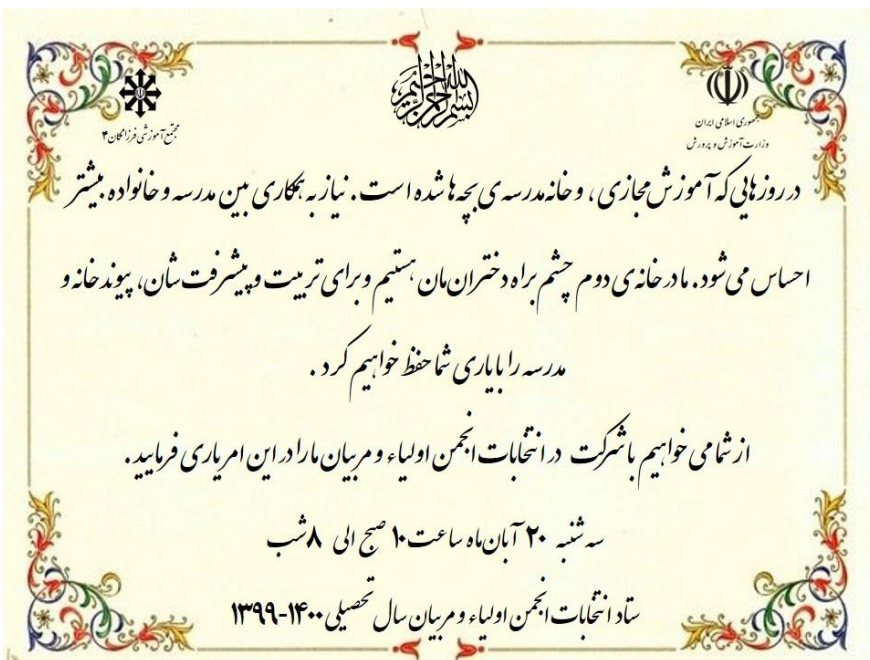 بسم الله الرحمن الرحیم
جمهوری اسلامی ایران
وزارت آموزش و پرورش
مجتمع آموزشی فرزانگان ۴
در روزهایی که آموزش مجازی ، و خانه مدرسه ی بچه ها شده است . نیاز به همکاری بین مدرسه و خانواده بیشتر
احساس می شود . ما در خانه ی دوم چشم براه دختران مان هستیم و برای تربیت و پیشرفت شان ، پیوند خانه و
مدرسه را با یاری شما حفظ خواهیم کرد .
از شما می خواهیم با شرکت در انتخابات انجمن اولیاء و مربیان ما را در این امر یاری فرمایید .
سه شنبه ۲۰ آبان ماه ساعت ۱۰ صبح الی ۸ شب
ستاد انتخابات انجمن اولیاء و مربیان سال تحصیلی ۱۴۰۰-۱۳۹۹